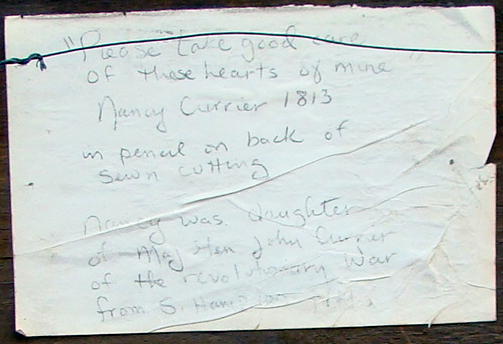 "Please take good care
of these hearts of mine"
Nancy Currier 1813
in pencil on back of
sewn cutting
Nancy was daughter
of Maj Gen John Currier
of the revolutionary war
from S. Hampton